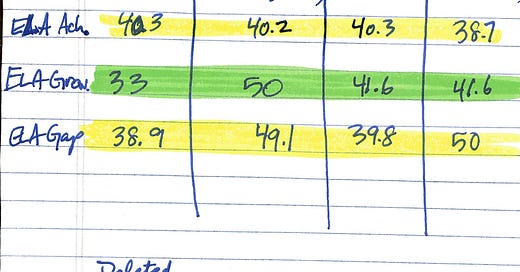 ELA Ach. 40.3 40.2 40.3 38.7
ELA Grow. 33 50 41.6 41.6
ELA Gap 38.9 49.1 39.8 50
Deleted